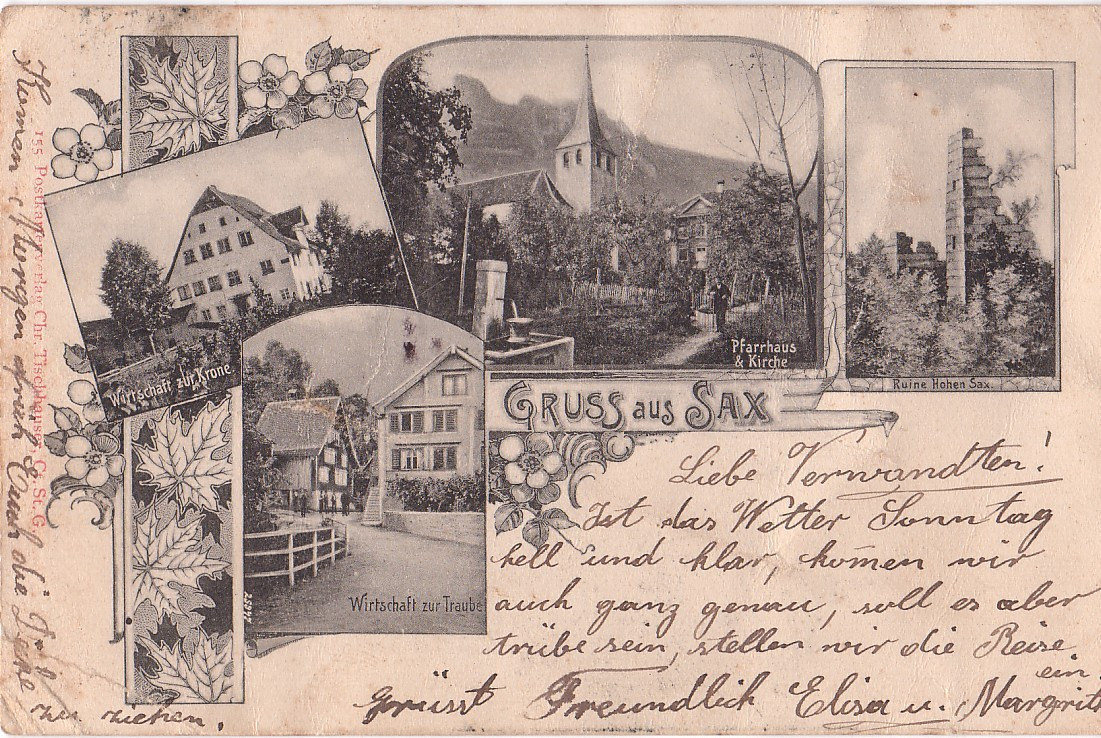 Pfarrhaus
& Kirche
Ruine Hohen Sax.
Wirtschaft zur Krone
Wirtschaft zur Traube
GRUSS aus SAX
Liebe Verwandten!
Ist das Wetter Sonntag
hell und klar, kom̄en wir
auch ganz genau, soll es aber
trübe sein, stellen wir die Reise
ein.
grüsst Freundlich Elisa u. Margrith
155 Postkartenverlag Chr. Tischhauser, G. St. G.
Morgen früh Euch die
zu ziehen.